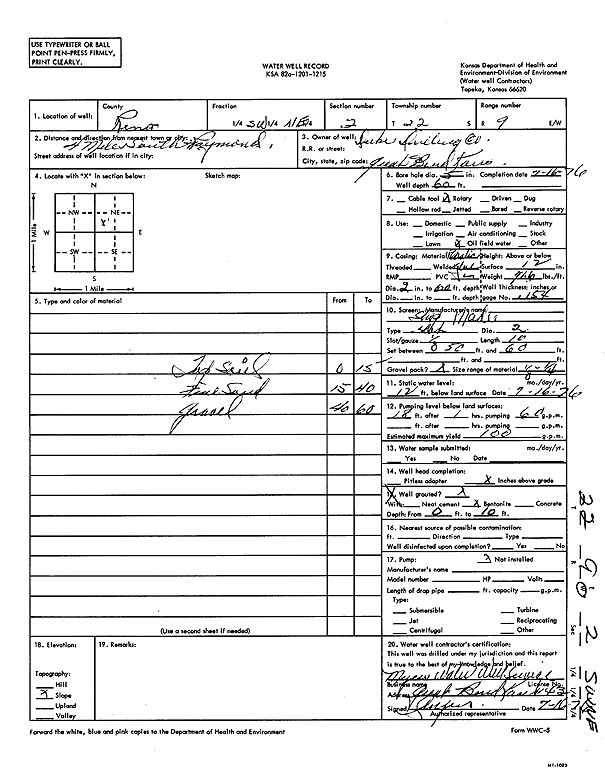 USE TYPEWRITER OR BALL
POINT PEN-PRESS FIRMLY,
PRINT CLEARLY.
WATER WELL RECORD
KSA 82a-1201-1215
Kansas Department of Health and
Environment-Division of Environment
(Water well Contractors)
Topeka, Kansas 66620
1. Location of well: County Reno Fraction 1/4 SW 1/4 NE 1/4 Section number 2 Township number T 22 S Range number R 9 E/W
2. Distance and direction from nearest town or city: 4 Mile South Raymond,
Street address of well location if in city:
3. Owner of well: Drilling Co.
R.R. or street:
City, state, zip code: Great Bend Kans.
4. Locate with "X" in section below: Sketch map:
N
NW NE
W X E
SW SE
S
1 Mile
1 Mile
5. Type and color of material From To
Top Soil 0 15
Fine Sand 15 40
Gravel 40 60
(Use a second sheet if needed)
6. Bore hole dia. 5 in. Completion date 7-16-76
Well depth 60 ft.
7. Cable tool X Rotary Driven Dug
Hollow rod Jetted Bored Reverse rotary
8. Use: Domestic Public supply Industry
Irrigation Air conditioning Stock
Lawn X Oil field water Other
9. Casing: Material Plastic Height: Above or below
Threaded Welded Glue Surface 12 in.
RMP PVC Weight lbs./ft.
Dia. 2 in. to 60 ft. depth Wall Thickness: inches or
Dia. in. to ft. depth gage No. .154
10. Screen: Manufacturer's name
Type Dia. 2
Slot/gauze Length 10
Set between 50 ft. and 60 ft.
ft. and ft.
Gravel pack? X Size range of material
11. Static water level: mo./day/yr.
12 ft. below land surface Date 7-16-76
12. Pumping level below land surfaces:
18 ft. after 1 hrs. pumping 60 g.p.m.
ft. after hrs. pumping g.p.m.
Estimated maximum yield 100 g.p.m.
13. Water sample submitted: mo./day/yr.
Yes No Date
14. Well head completion:
Pitless adapter X Inches above grade
15. Well grouted? X
With: Neat cement X Bentonite Concrete
Depth: From 0 ft. to 10 ft.
16. Nearest source of possible contamination:
ft. Direction Type
Well disinfected upon completion? Yes No
17. Pump: Not installed
Manufacturer's name
Model number HP Volts
Length of drop pipe ft. capacity g.p.m.
Type:
Submersible Turbine
Jet Reciprocating
Centrifugal Other
18. Elevation:
Topography:
Hill
X Slope
Upland
Valley
19. Remarks:
20. Water well contractor's certification:
This well was drilled under my jurisdiction and this report
is true to the best of my knowledge and belief.
Water Well Service
Business name License No.
Address Great Bend Kans
Signed Date 7-16
Authorized representative
T 22 R 9 W Sec 2 1/4 1/4 1/4
Forward the white, blue and pink copies to the Department of Health and Environment
Form WWC-5